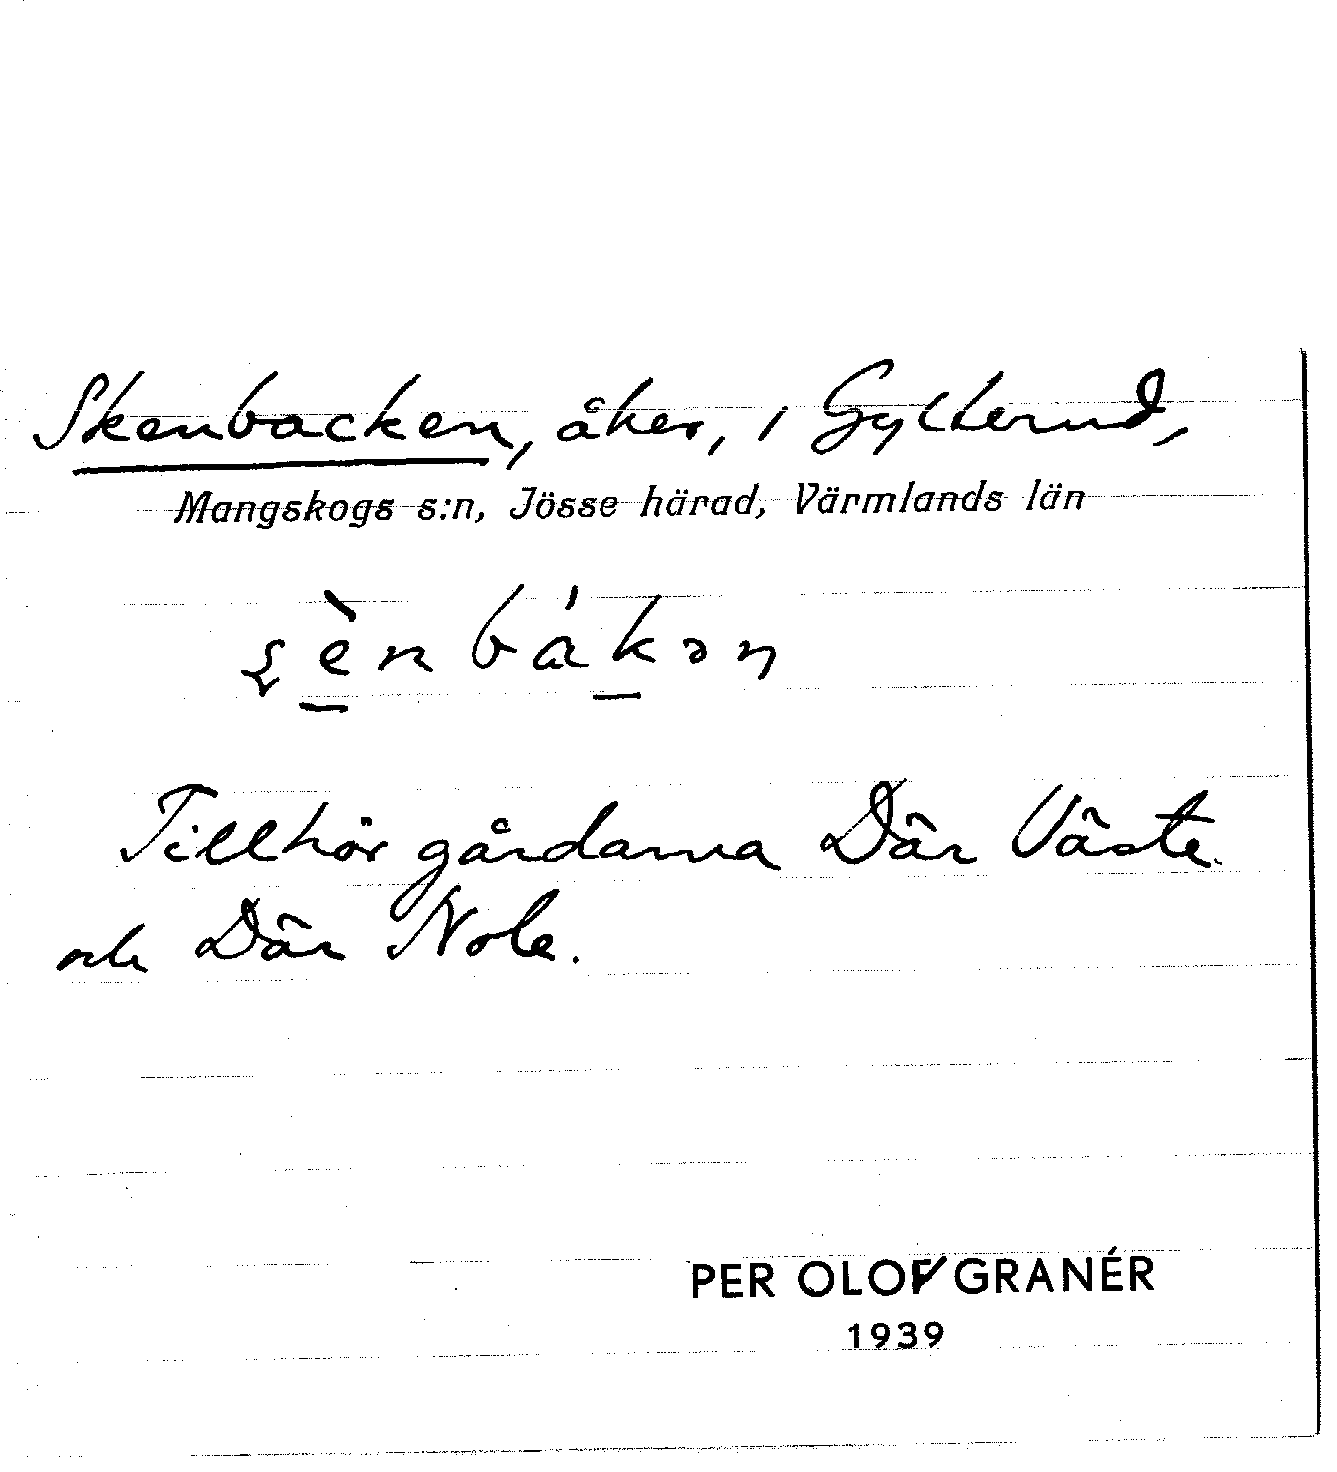 Skenbacken, åker, i Gylterud,
Mangskogs s:n, Jösse härad, Värmlands län
bákən
Tillhör gårdarna Där Väste
och Där Nole.
PER OLOF GRANÉR
1939